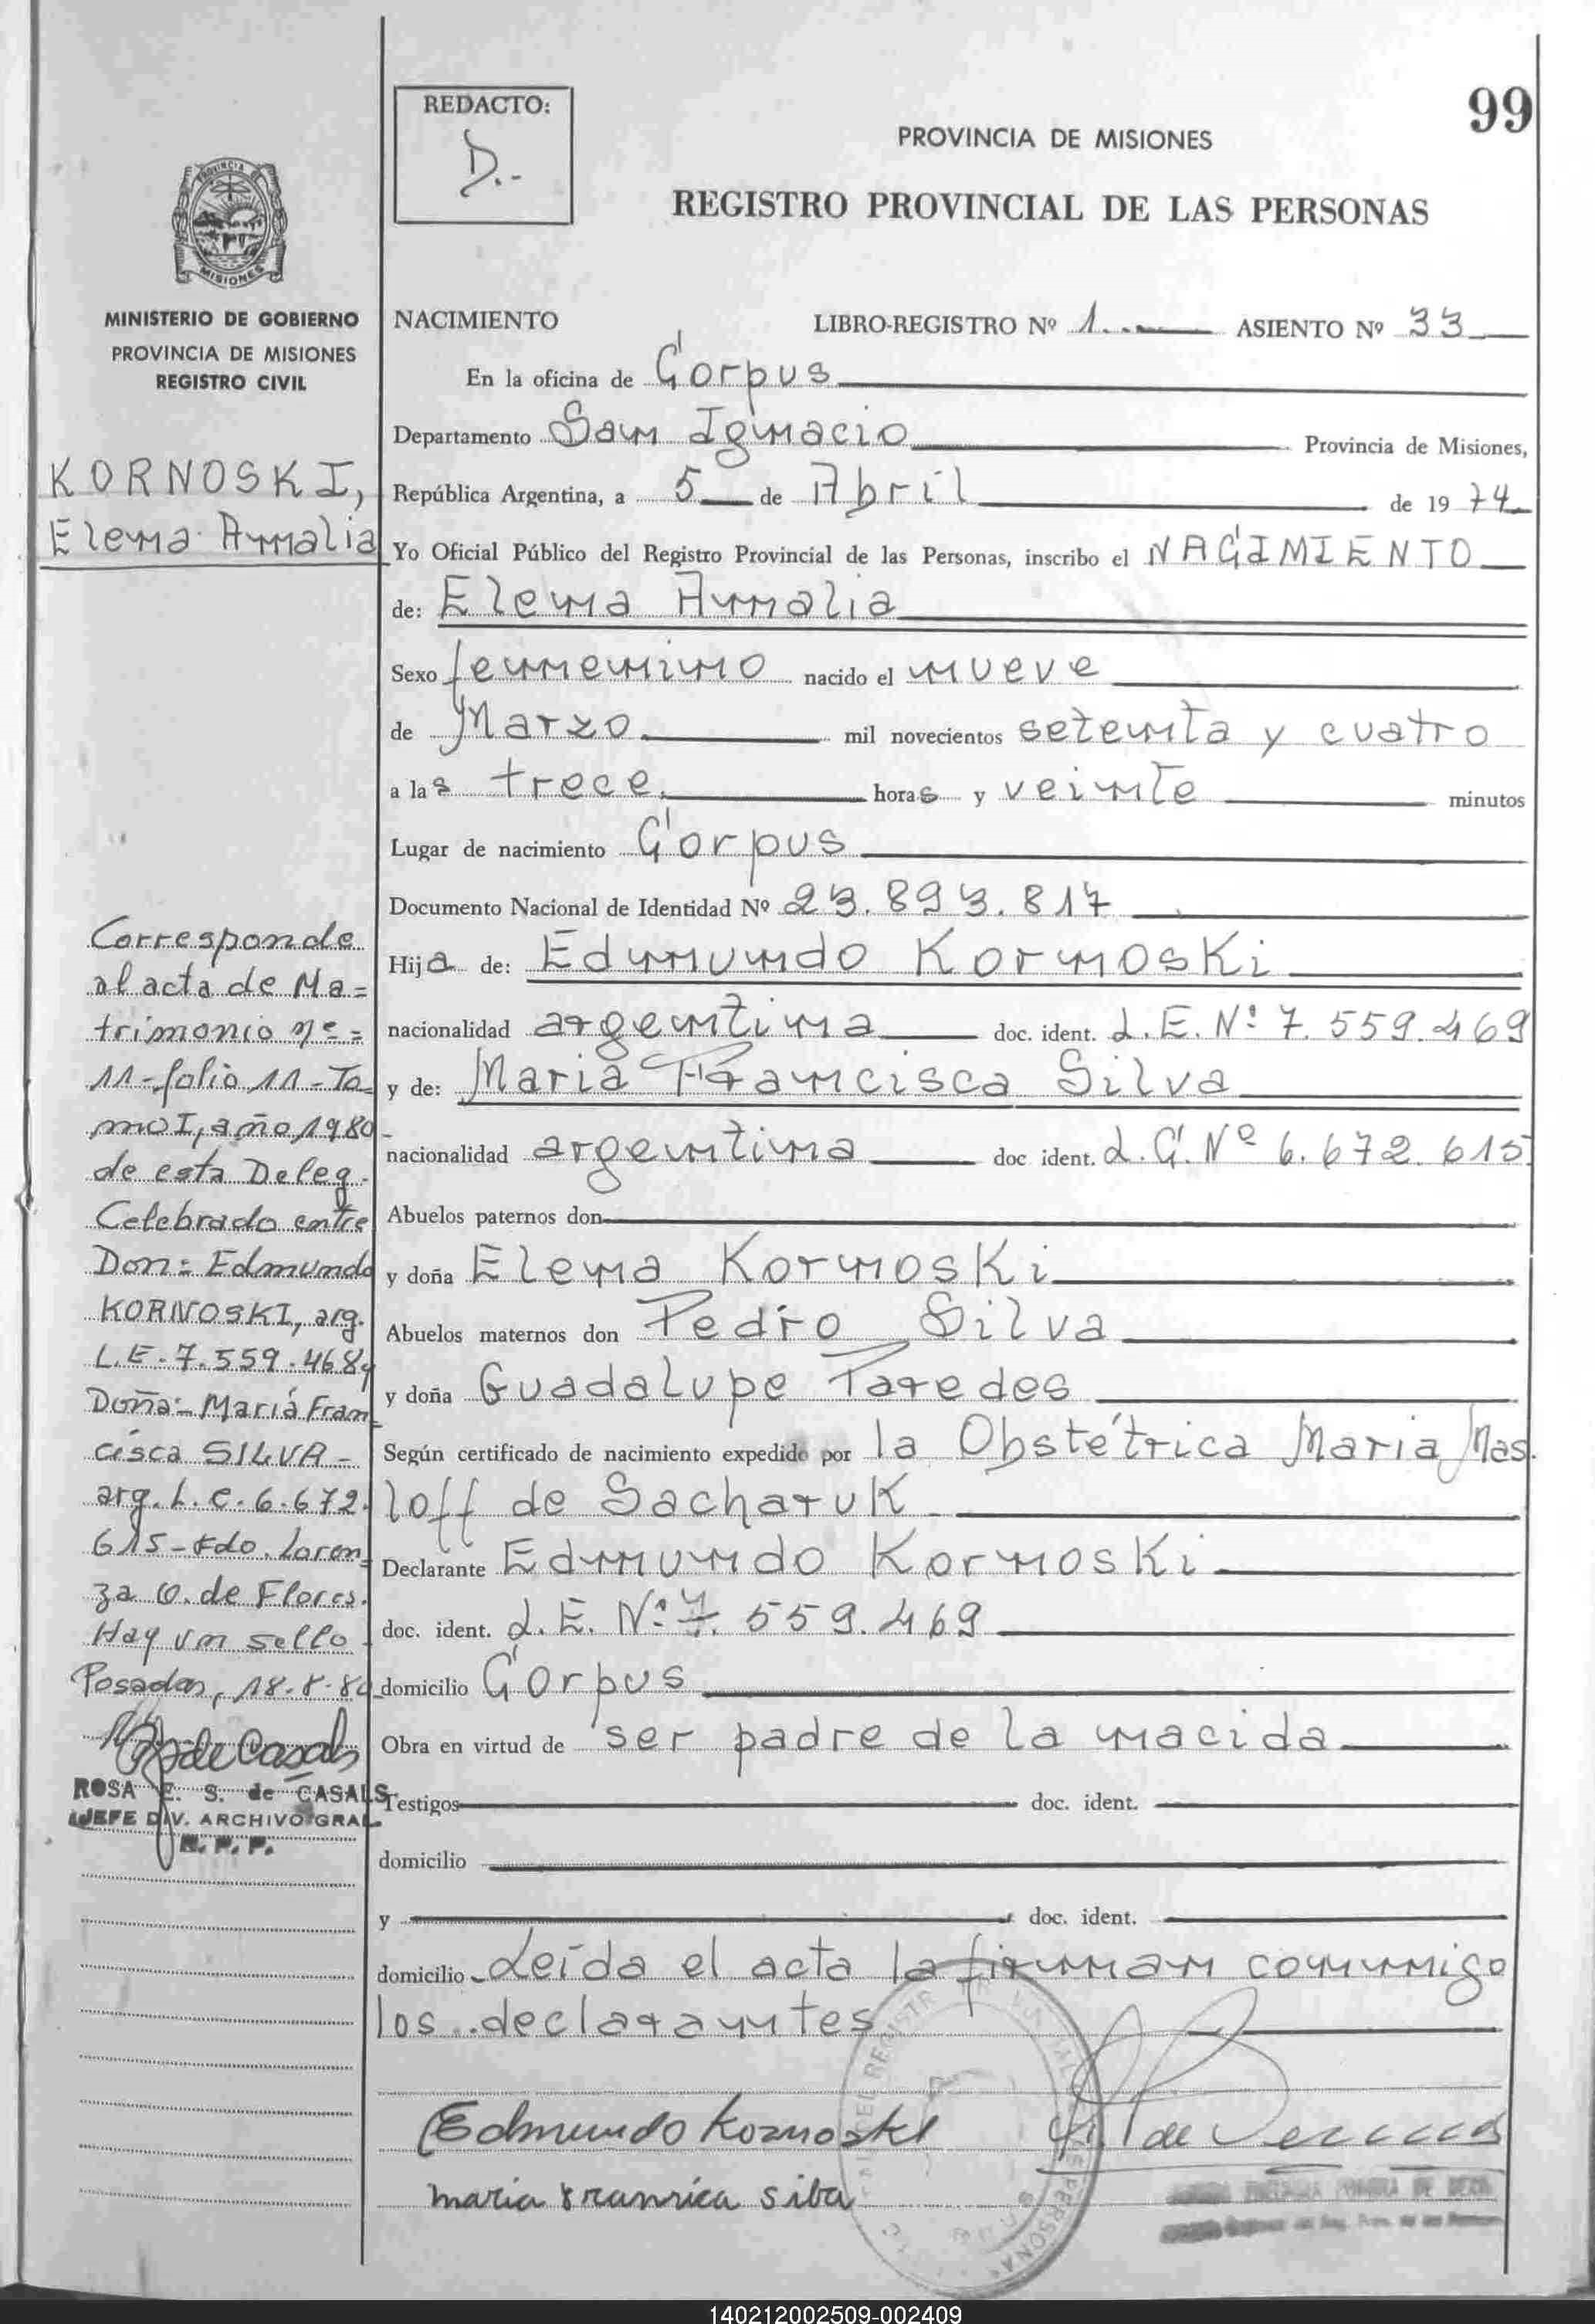 99
REDACTO:
D.-
PROVINCIA DE MISIONES
REGISTRO PROVINCIAL DE LAS PERSONAS
PROVINCIA DE
MISIONES
MINISTERIO DE GOBIERNO
PROVINCIA DE MISIONES
REGISTRO CIVIL
KORNOSKI,
Elena Amalia
NACIMIENTO LIBRO-REGISTRO Nº 1. ASIENTO Nº 33
En la oficina de Corpus
Departamento San Ignacio Provincia de Misiones,
República Argentina, a 5 de Abril de 1974
Yo Oficial Público del Registro Provincial de las Personas, inscribo el NACIMIENTO
de: Elena Amalia
Sexo femenino nacido el nueve
de Marzo mil novecientos setenta y cuatro
a las trece horas y veinte minutos
Lugar de nacimiento Corpus
Documento Nacional de Identidad Nº 23.893.817
Hija de: Edmundo Kornoski
nacionalidad argentina doc. ident. L.E. Nº 7.559.469
y de: Maria Francisca Silva
nacionalidad argentina doc ident. L.C. Nº 6.672.615
Abuelos paternos don
y doña Elena Kornoski
Abuelos maternos don Pedro Silva
y doña Guadalupe Paredes
Según certificado de nacimiento expedido por la Obstétrica Maria Mas
loff de Sacharuk
Declarante Edmundo Kornoski
doc. ident. L.E. Nº 7.559.469
domicilio Corpus
Obra en virtud de ser padre de la nacida
Testigos doc. ident.
domicilio
y doc. ident.
domicilio Leída el acta la firman conmigo
los declarantes
Edmundo Kornoski
maria franrica silva
Corresponde
al acta de Ma=
trimonio nº=
11-folio 11-To
mo I, año 1980
de esta Deleg.
Celebrado entre
Don= Edmundo
KORNOSKI, arg.
L.E-7.559.468y
Doña- Mariá Fran
cisca SILVA-
arg. L.c.6.672.
615-Fdo. Loren
za O. de Flores.
Hay un sello
Posadas, 18-8-80
de Casals
ROSA E. S. de CASALS
JEFE DIV. ARCHIVO GRAL
R. P. P.
140212002509-002409